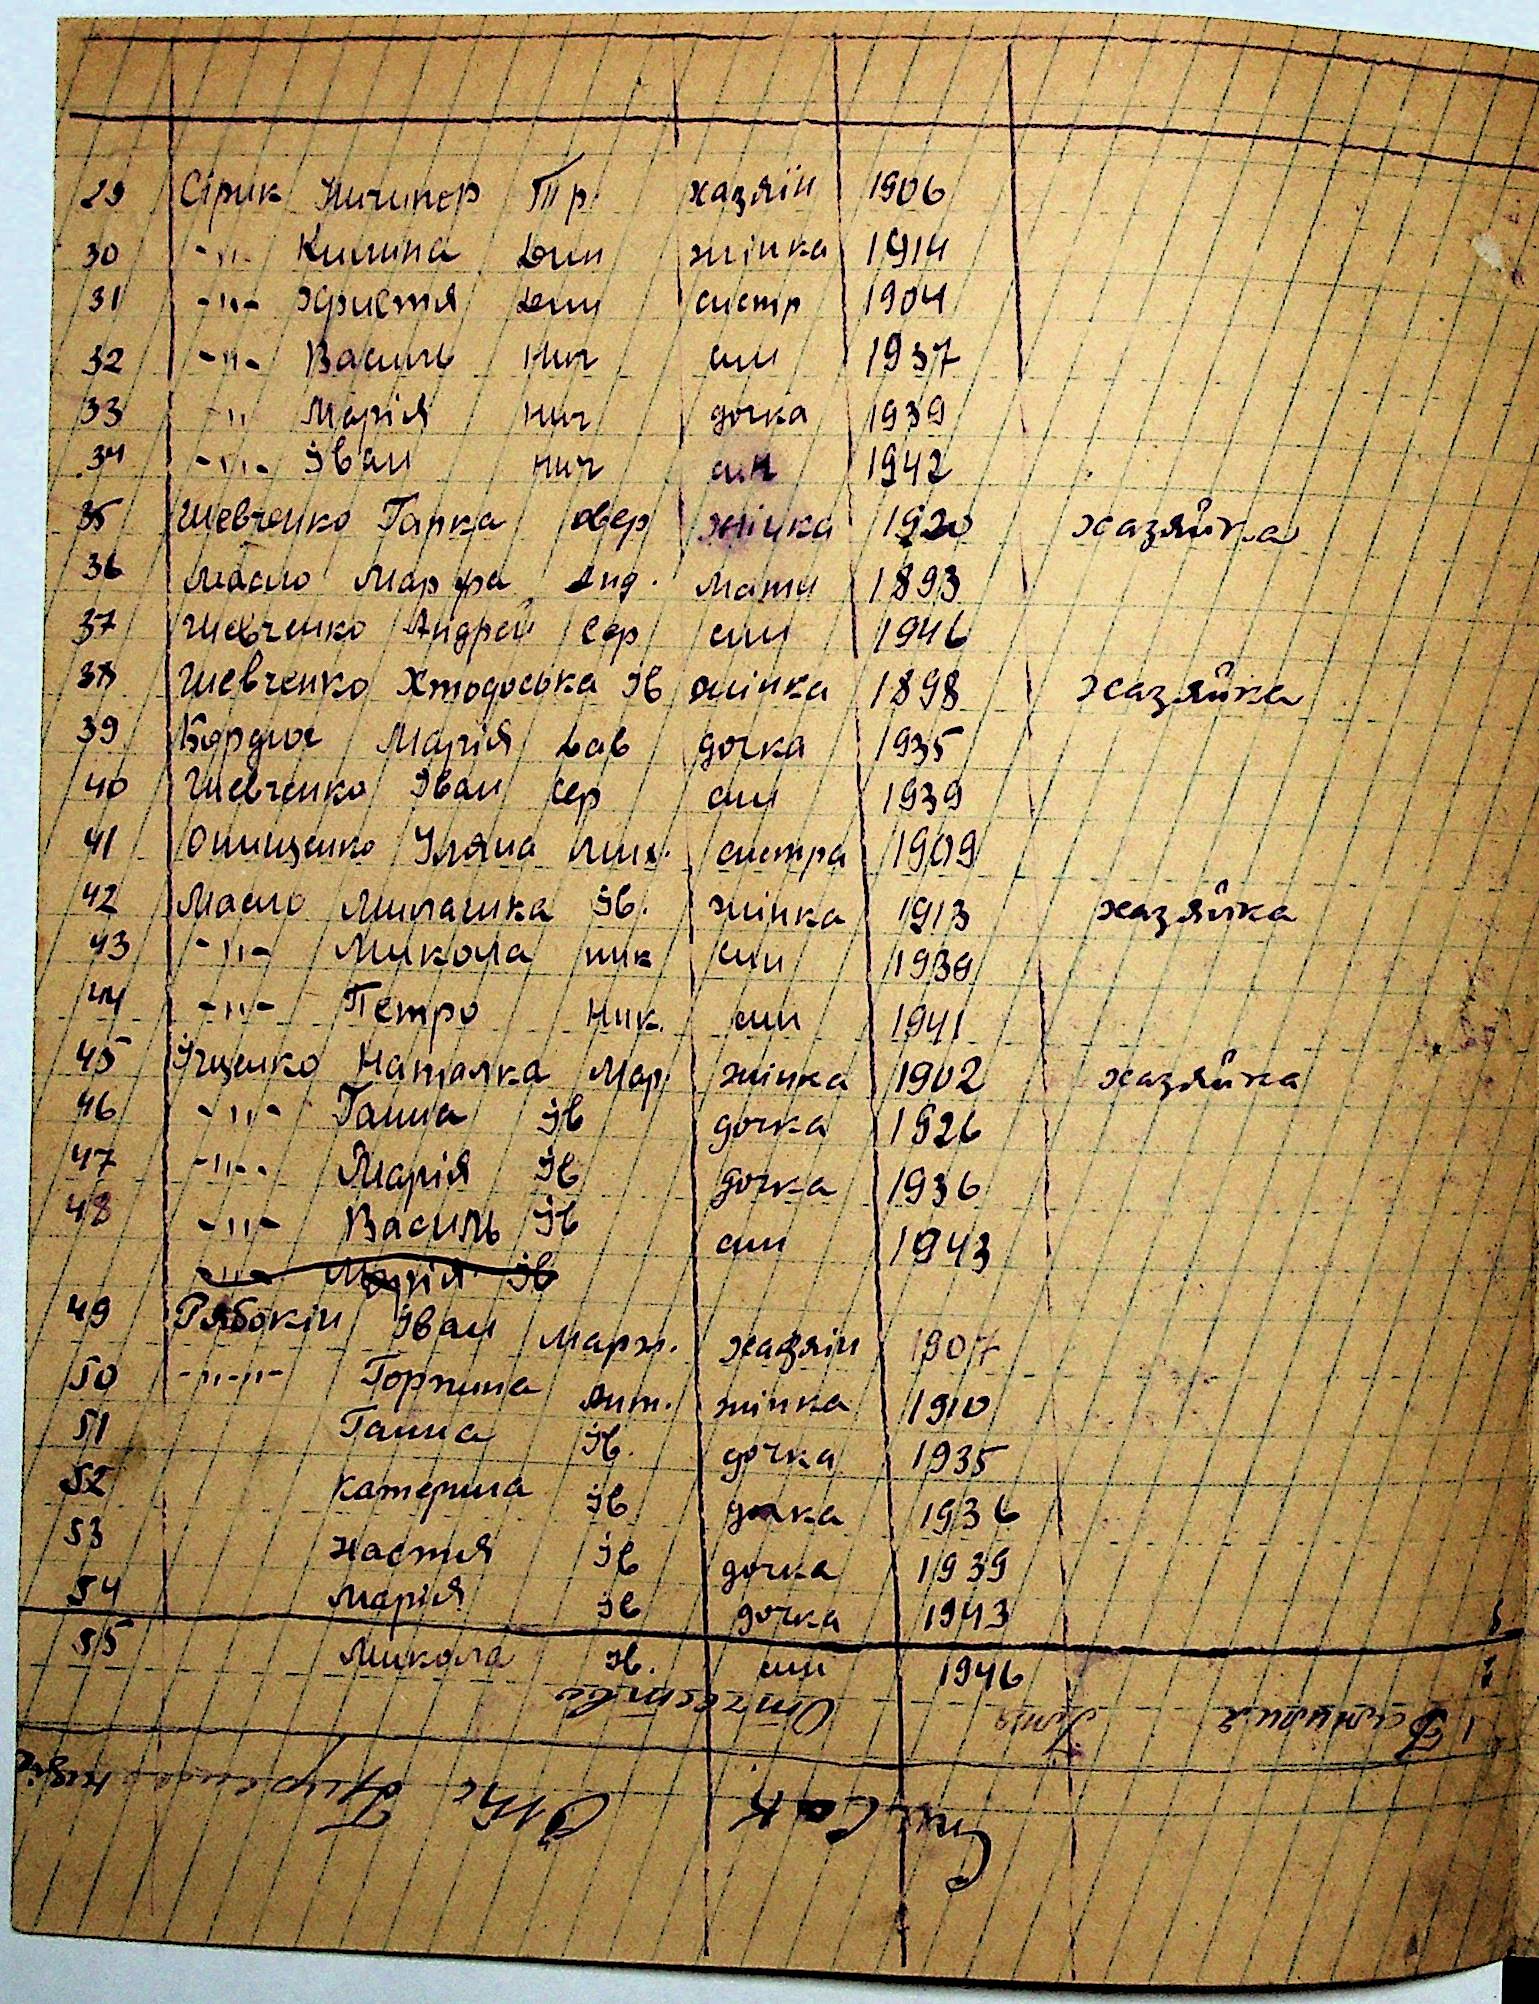 29 Сірик Ничипор Тр. хазяїн 1906
30 -"- Килина Дни жінка 1914
31 -"- Христя Дни систр 1904
32 -"- Василь Нич син 1937
33 " Марія Нич дочка 1939
34 -"- Іван Нич син 1942
35 Шевченко Гапка Овер жінка 1920 хазяйка
36 Масло Марфа Анд. мати 1893
37 Шевченко Андрей Сер син 1946
38 Шевченко Хтодоська Ів жінка 1898 хазяйка
39 Марія Дав дочка 1935
40 Шевченко Іван Сер син 1939
41 Онищенко Уляна Мих. систра 1909
42 Масло Милашка Ів. жінка 1913 хазяйка
43 -"- Микола Ник син 1939
44 -"- Петро Ник. син 1941
45 Іщенко Наталка Мар. жінка 1902 хазяйка
46 -"- Ганна Ів дочка 1926
47 -"- Марія Ів дочка 1936
48 -"- Василь Ів син 1943
-"- Марія Ів
49 Рябокін Іван Марк. хазяїн 1907
50 -"-"- Горпина Ант. жінка 1910
51 Ганна Ів. дочка 1935
52 Катерина Ів дочка 1936
53 Настя Ів дочка 1939
54 Марія Ів дочка 1943
55 Микола Ів. син 1946
Фамилия Имя Отчество
Список